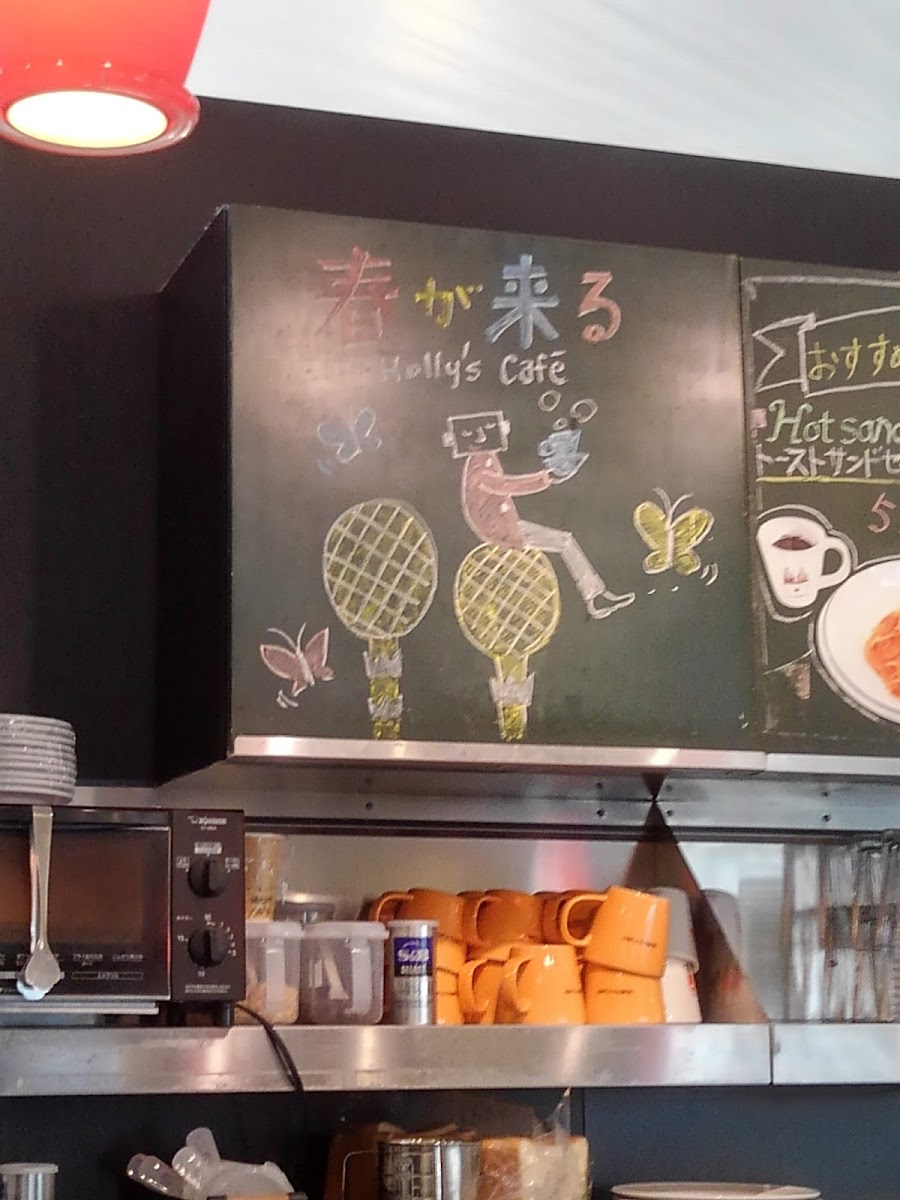 春が来る
Holly's Café
おすす
Hot san
トーストサンドセ
5
S&B
ZOJIRUSHI